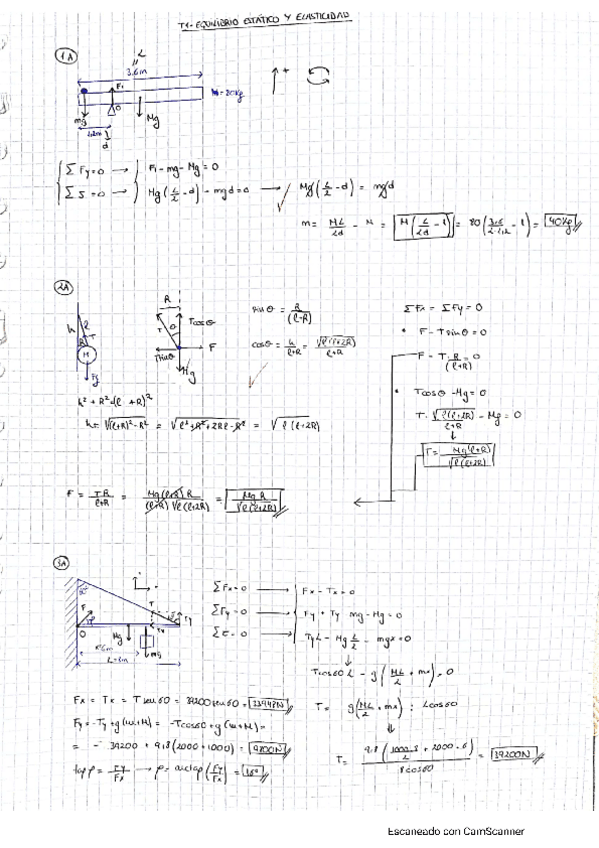 T1- EQUILIBRIO ESTÁTICO Y ELASTICIDAD
1A
L
3.6m
F1
M=80kg
O
mg
Mg
1.2m
d
ΣFy=0 → F1-mg-Mg=0
Στ=0 → Mg(L/2-d)-mgd=0 → Mg(L/2-d)=mgd
m= ML/2d - M = M(L/2d - 1) = 80(3.6/2·1.2 - 1) = 40kg
2A
R
h
l
T
R
M
Fg
T
θ
Tcosθ
Tsinθ
F
Mg
sinθ = R/(l+R)
cosθ = h/l+R = √l(l+2R)/l+R
ΣFx = ΣFy = 0
• F-Tsinθ=0
F-T·R/(l+R)=0
• Tcosθ-Mg=0
T·√l(l+2R)/l+R - Mg = 0
T= Mg(l+R)/√l(l+2R)
h²+R²=(l+R)²
h=√(l+R)²-R² = √l²+R²+2Rl-R² = √l(l+2R)
F = TR/l+R = Mg(l+R)R/(l+R)√l(l+2R) = MgR/√l(l+2R)
3A
60°
F
T
Ty
Tx
O
Mg
mg
x=6m
L=8m
ΣFx=0 → Fx-Tx=0
ΣFy=0 → Fy+Ty mg-Mg=0
Στ=0 → TyL-Mg L/2 - mgx=0
Tcos60 L - g(ML/2 + mx)=0
T= g(ML/2+mx) : Lcos60
T= 9.8(1000·8/2 + 2000·6)/8cos60 = 39200N
Fx = Tx = Tsen60 = 39200sen60 = 33948N
Fy=-Ty+g(m+M)= -Tcos60+g(m+M)=
= - 39200 + 9.8(2000+1000) = 9800N
tanφ = Fy/Fx → φ= arctan(Fy/Fx) = 16°
Escaneado con CamScanner